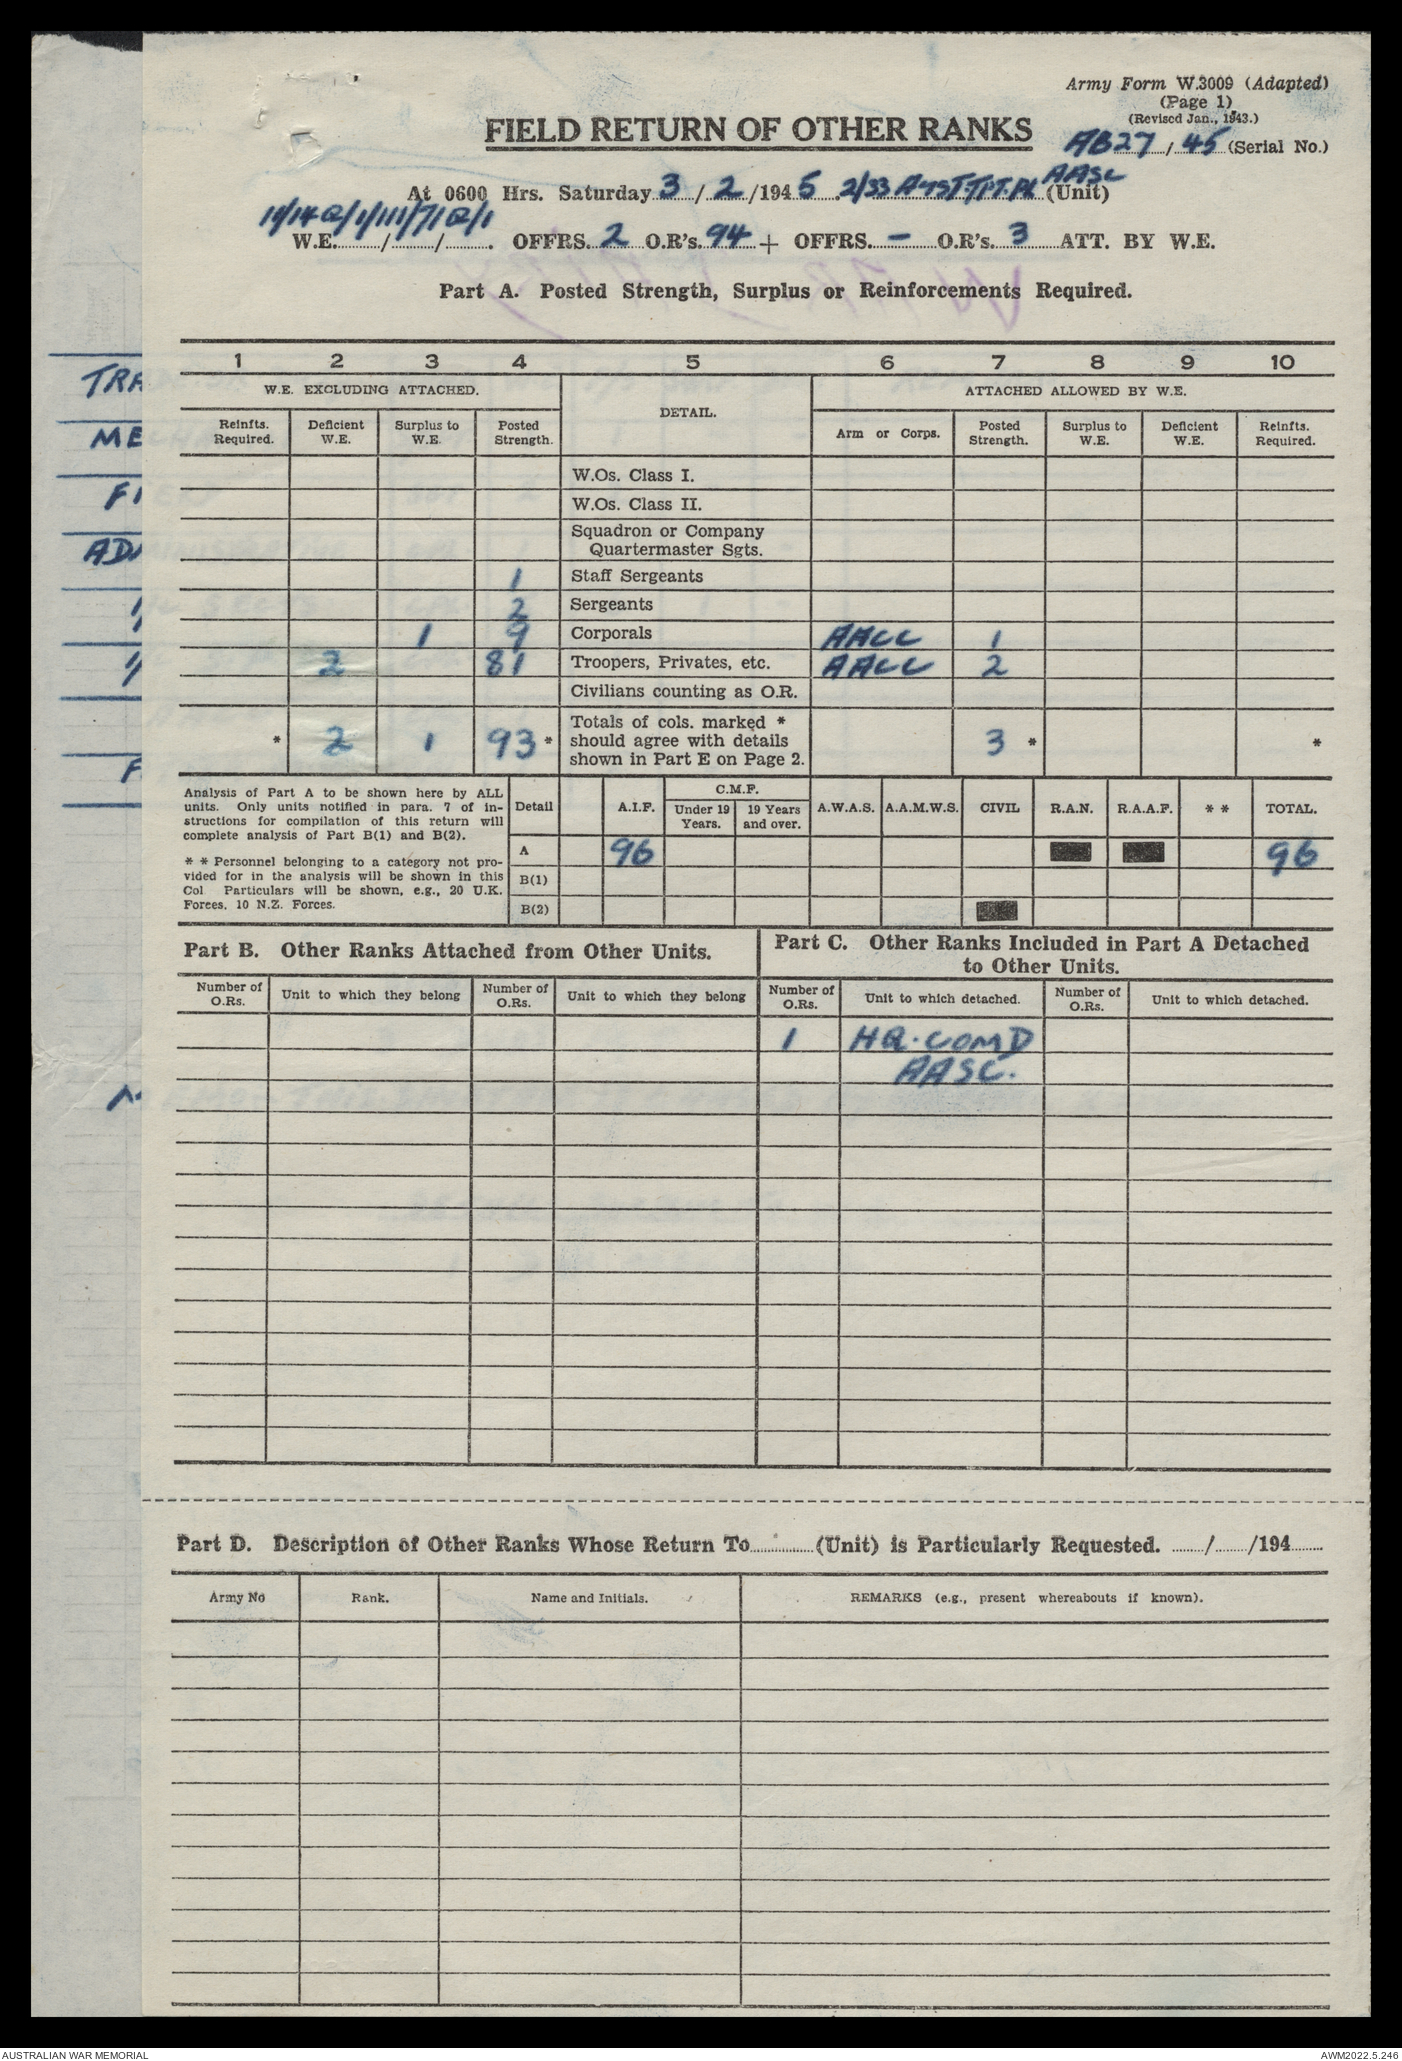 Army Form W.3009 (Adapted)
(Page 1)
(Revised Jan., 1943.)
FIELD RETURN OF OTHER RANKS
AB27 / 45 (Serial No.)
AASC
At 0600 Hrs. Saturday 3 / 2 /1945. 2/33 A-TST.TPT.PL (Unit)
W.E. / / . OFFRS. 2 O.R's. 94 + OFFRS. - O.R's. 3 ATT. BY W.E.
Part A. Posted Strength, Surplus or Reinforcements Required.
1 2 3 4 5 6 7 8 9 10
W.E. EXCLUDING ATTACHED. DETAIL. ATTACHED ALLOWED BY W.E.
Reinfts. Required. Deficient W.E. Surplus to W.E. Posted Strength. Arm or Corps. Posted Strength. Surplus to W.E. Deficient W.E. Reinfts. Required.
W.Os. Class I.
W.Os. Class II.
Squadron or Company
Quartermaster Sgts.
1 Staff Sergeants
2 Sergeants
1 9 Corporals AACC 1
2 81 Troopers, Privates, etc. AACC 2
Civilians counting as O.R.
Totals of cols. marked *
* 2 1 93 * should agree with details 3 * *
shown in Part E on Page 2.
Analysis of Part A to be shown here by ALL
units. Only units notified in para. 7 of in-
structions for compilation of this return will
complete analysis of Part B(1) and B(2).
* * Personnel belonging to a category not pro-
vided for in the analysis will be shown in this
Col Particulars will be shown, e.g., 20 U.K.
Forces, 10 N.Z. Forces.
Detail A.I.F. C.M.F. Under 19 Years. 19 Years and over. A.W.A.S. A.A.M.W.S. CIVIL R.A.N. R.A.A.F. * * TOTAL.
A 96 96
B(1)
B(2)
Part B. Other Ranks Attached from Other Units.
Number of O.Rs. Unit to which they belong Number of O.Rs. Unit to which they belong
Part C. Other Ranks Included in Part A Detached
to Other Units.
Number of O.Rs. Unit to which detached. Number of O.Rs. Unit to which detached.
1 HQ. COMD
AASC.
Part D. Description of Other Ranks Whose Return To (Unit) is Particularly Requested. / /194
Army No Rank. Name and Initials. REMARKS (e.g., present whereabouts if known).
AUSTRALIAN WAR MEMORIAL
AWM2022.5.246